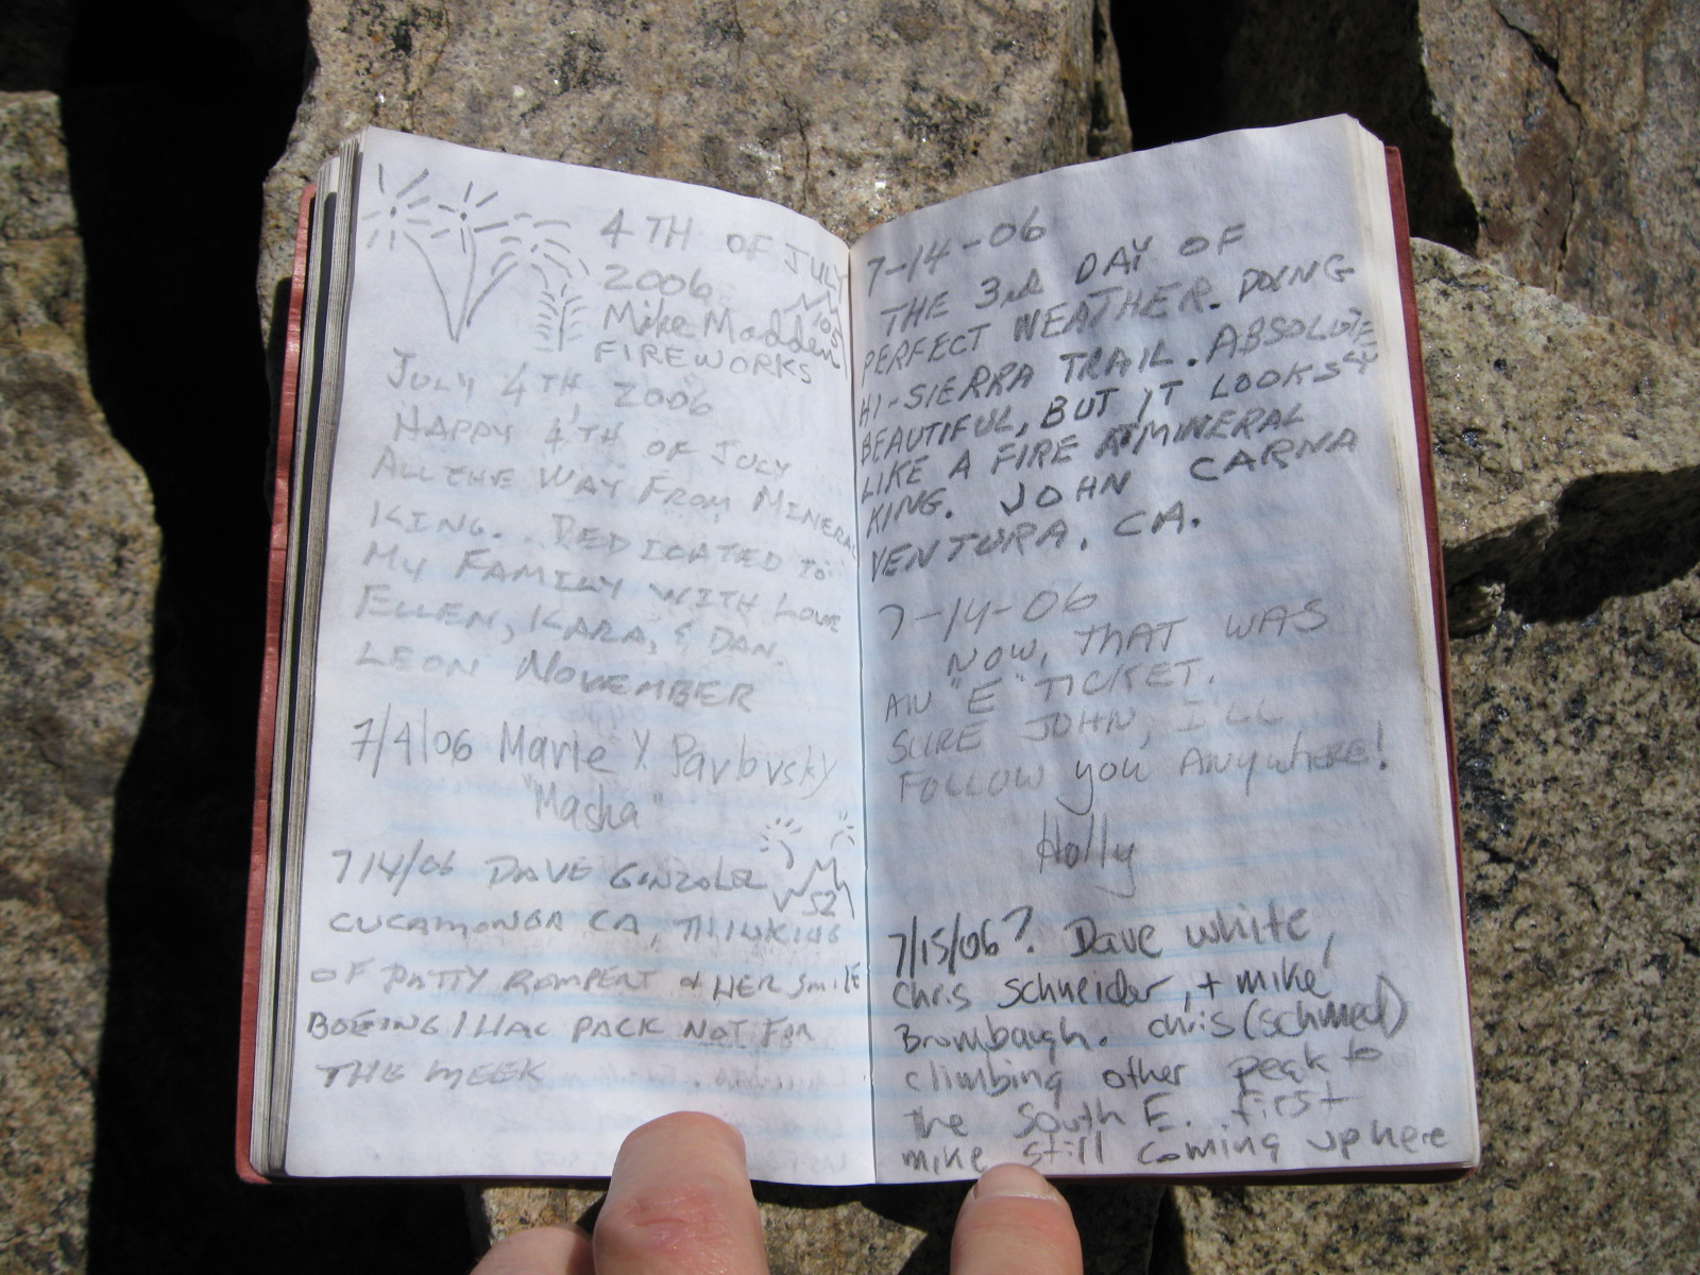 4TH OF JULY
2006
Mike Madden
FIREWORKS
105
JULY 4TH, 2006
HAPPY 4TH OF JULY
ALL THE WAY FROM MINERAL
KING.. DEDICATED TO
MY FAMILY WITH LOVE
ELLEN, KARA, & DAN.
LEON NOVEMBER
7/4/06 Marie Y. Pavlovsky
"Masha"
7/4/06 DAVE GONZALEZ
52
CUCAMONGA CA, THINKING
OF PATTY ROMPERT & HER SMILE
BOEING PACK NOT FOR
THE MEEK
7-14-06
THE 3RD DAY OF
PERFECT WEATHER. DOING
HI-SIERRA TRAIL. ABSOLUTE
BEAUTIFUL, BUT IT LOOKS LY
LIKE A FIRE AT MINERAL
KING. JOHN CARNA
VENTURA, CA.
7-14-06
NOW, THAT WAS
AN "E" TICKET.
SURE JOHN, I'LL
FOLLOW YOU ANYWHERE!
Holly
7/15/06? Dave white,
chris schneider, + mike
Brombaugh. chris (schmed)
climbing other peak to
the South E. first
mike still coming up here